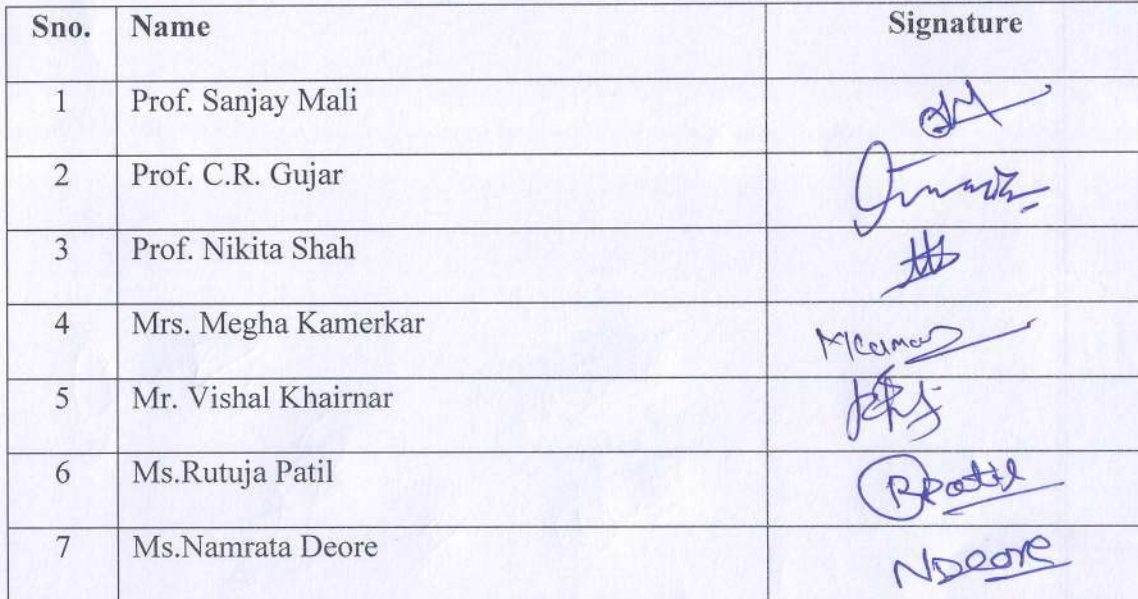 Sno. Name Signature
1 Prof. Sanjay Mali
2 Prof. C.R. Gujar
3 Prof. Nikita Shah
4 Mrs. Megha Kamerkar
5 Mr. Vishal Khairnar
6 Ms.Rutuja Patil RPatil
7 Ms.Namrata Deore NDeore